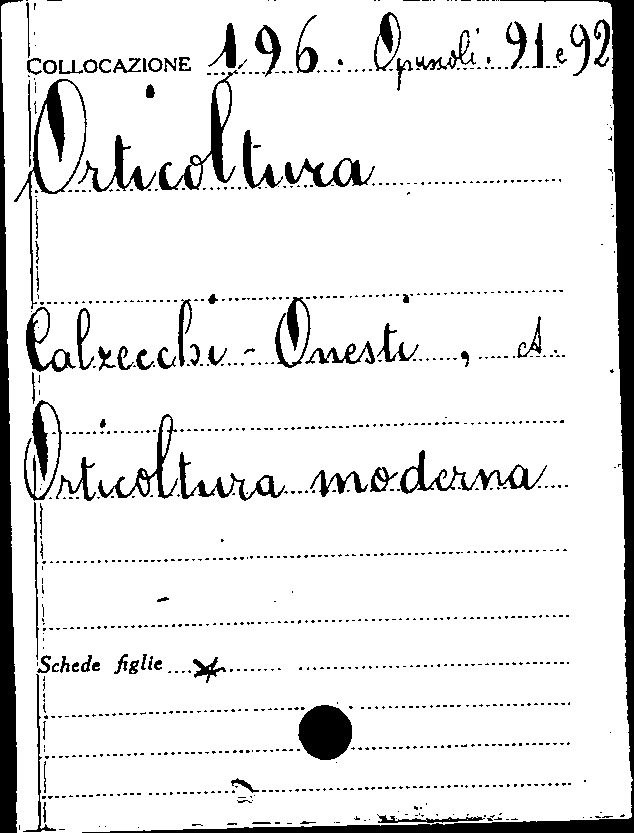 COLLOCAZIONE 196. Opuscoli. 91 e 92
Orticoltura
Calzecchi-Onesti, A.
Orticoltura moderna
Schede figlie